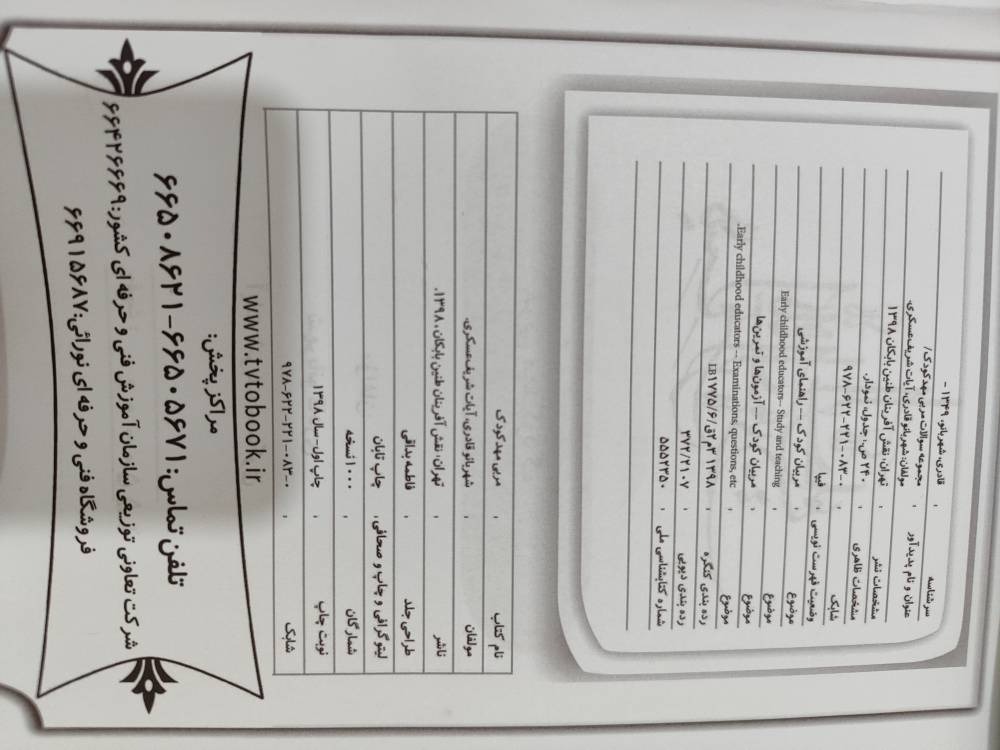 سرشناسه : قادری، شهربانو، ۱۳۴۹ -
عنوان و نام پدیدآور : مجموعه سوالات مربی مهد کودک /
مولفان: شهربانو قادری، آیات شریف‌عسکری.
مشخصات نشر : تهران، نقش آفرینان طنین بابکان ۱۳۹۸
مشخصات ظاهری : ۲۴۰ ص: جدول، نمودار.
شابک : ۹۷۸-۶۲۲-۲۲۱-۰۸۳-۰
وضعیت فهرست نویسی : فیپا
موضوع : مربیان کودک -- راهنمای آموزشی
موضوع : Early childhood educators-- Study and teaching
موضوع : مربیان کودک -- آزمون‌ها و تمرین‌ها
موضوع : Early childhood educators -- Examinations, questions, etc.
رده بندی کنگره : LB۱۷۷۵/۶/ق۲م۳ ۱۳۹۸
رده بندی دیویی : ۳۷۲/۲۱۰۷
شماره کتابشناسی ملی : ۵۵۵۲۳۵۰
نام کتاب : مربی مهد کودک
مولفان : شهربانو قادری، آیات شریف‌عسکری.
ناشر : تهران، نقش آفرینان طنین بابکان، ۱۳۹۸.
طراحی جلد : فاطمه بداقی
لیتوگرافی و چاپ و صحافی : چاپ تابان
شمارگان : ۱۰۰۰ نسخه
نوبت چاپ : چاپ اول - سال ۱۳۹۸
شابک : ۹۷۸-۶۲۲-۲۲۱-۰۸۳-۰
www.tvtobook.ir
مراکز پخش:
تلفن تماس: ۶۶۵۰۵۶۷۱-۶۶۵۰۸۶۲۱
شرکت تعاونی توزیعی سازمان آموزش فنی و حرفه ای کشور: ۶۶۴۲۶۶۶۹
فروشگاه فنی و حرفه ای نورائی: ۶۶۹۱۵۶۸۷